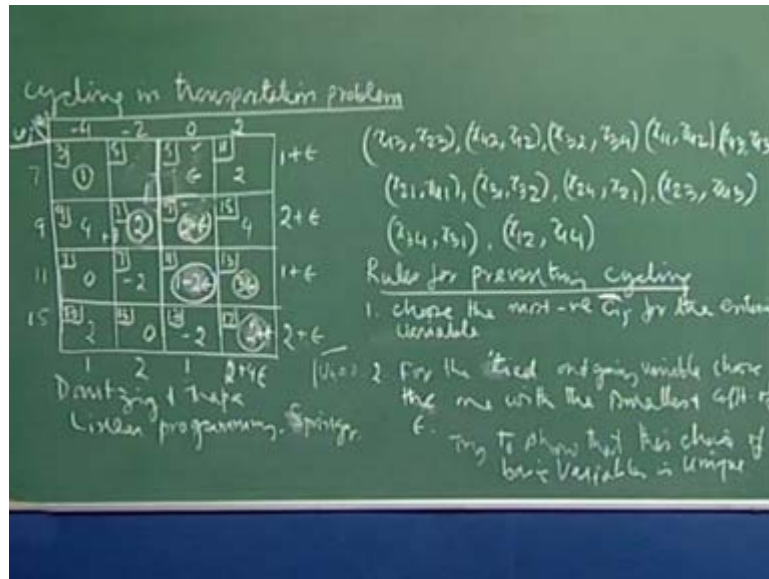 cycling in transportation problem
-4 -2 0 2
7 3 1 5 5 ε 11 2 1+ε
9 9 4 7 2 9 15 4 2+ε
11 7 0 7 -2 11 1-2ε 13 3ε 1+ε
15 13 2 13 0 13 -2 17 2+ε
1 2 1 2+4ε
Dantzig & Thapa
Linear programming, Springer
(x13, x23), (x42, x12), (x32, x34) (x11, x42)
(x21, x41), (x31, x32), (x24, x21), (x23, x43)
(x34, x31), (x12, x44)
Rules for preventing cycling
1. choose the most -ve c̄ij for the
variable
2 For the tied outgoing variable choose
the one with the smallest coft of
ε.
Try to show that this choice of
basic variables is unique